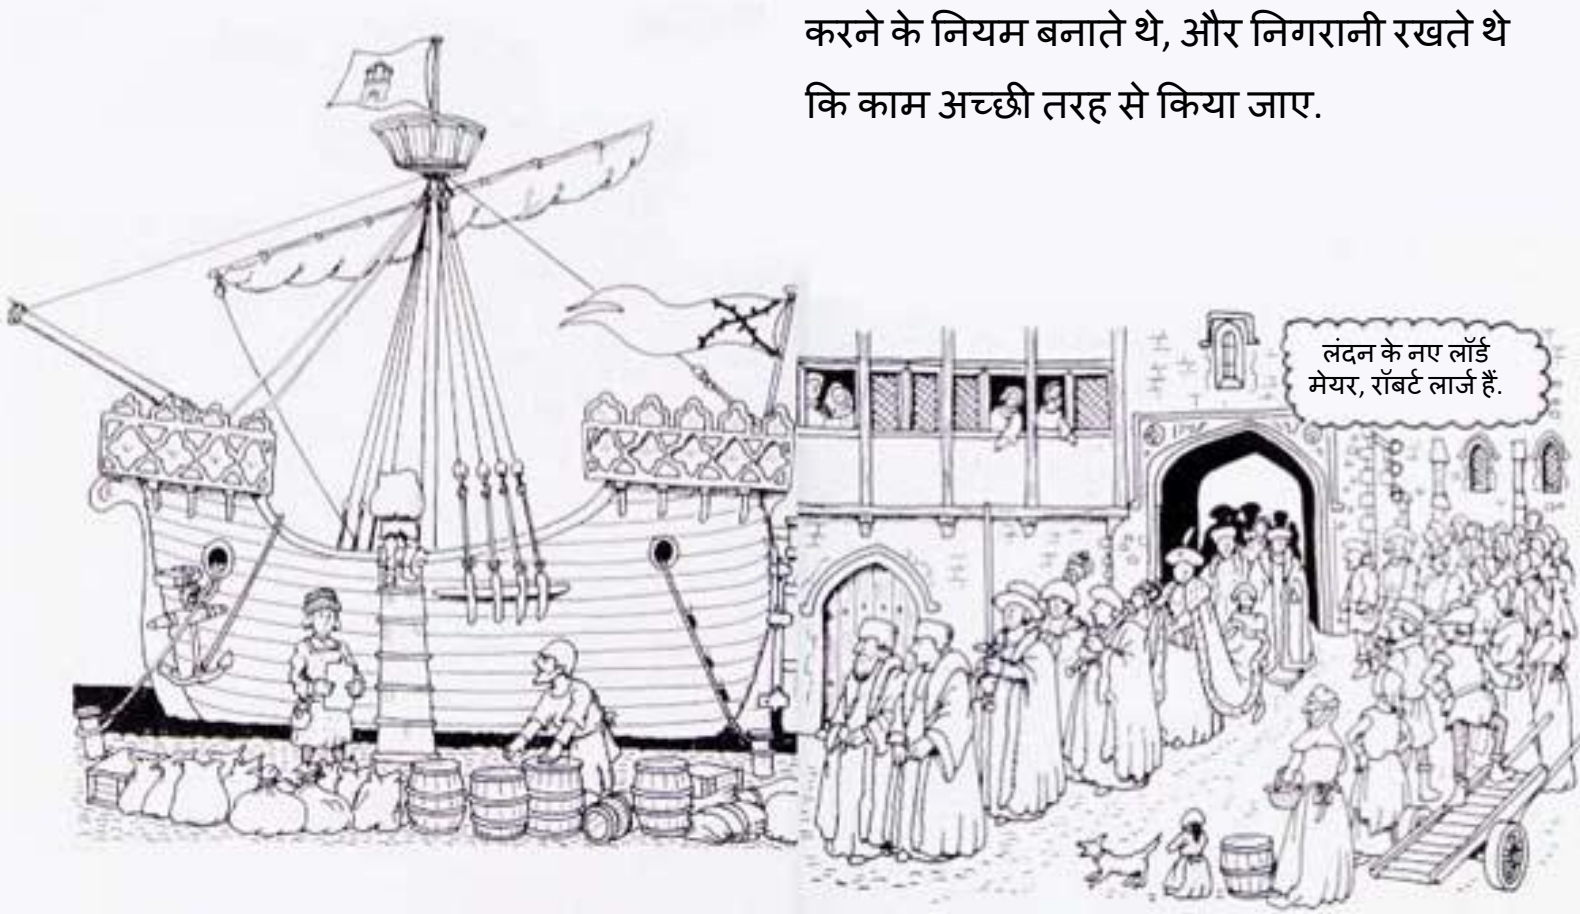 करने के नियम बनाते थे, और निगरानी रखते थे
कि काम अच्छी तरह से किया जाए.
लंदन के नए लॉर्ड
मेयर, रॉबर्ट लार्ज हैं.